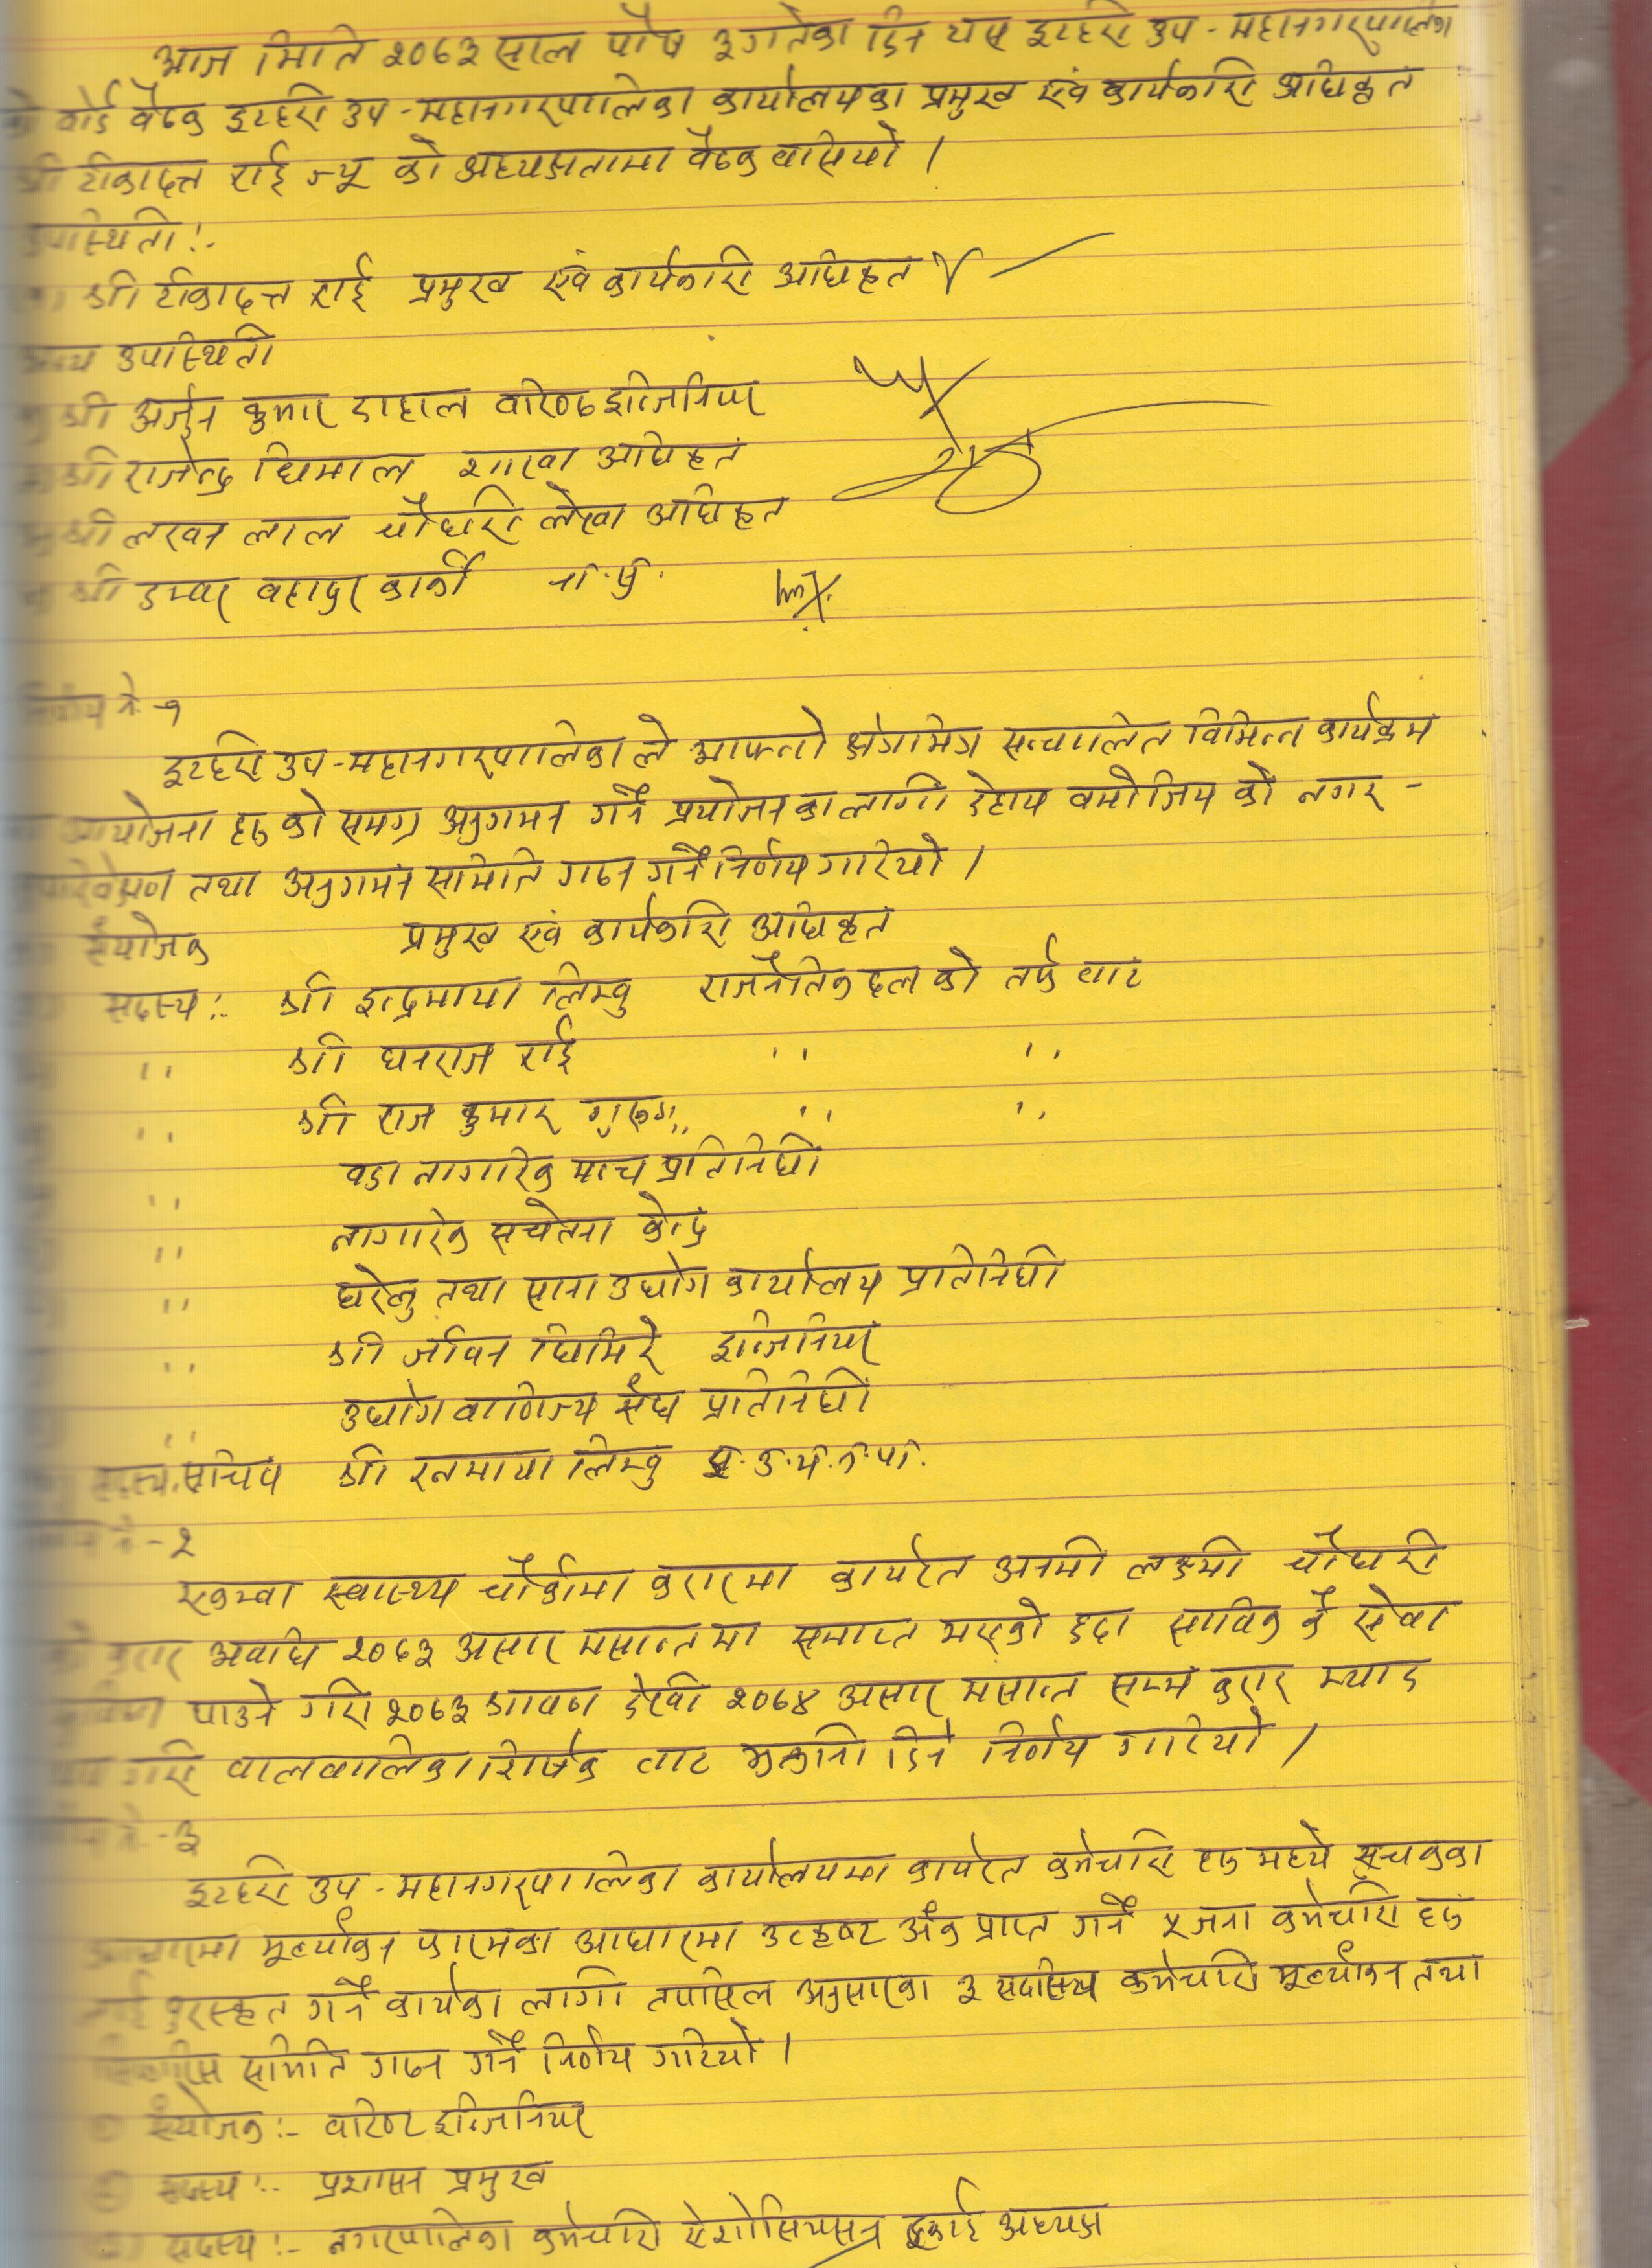 आज मिति २०६३ साल पौष ३ गतेका दिन यस इटहरी उप-महानगरपालिका
को बोर्ड बैठक इटहरी उप-महानगरपालिका कार्यालयका प्रमुख एवं कार्यकारी अधिकृत
श्री टीकादत्त राई ज्यू को अध्यक्षतामा बैठक बसियो ।
उपस्थिती :-
श्री टीकादत्त राई प्रमुख एवं कार्यकारी अधिकृत
अन्य उपस्थिती
श्री अर्जुन कुमार दाहाल वरिष्ठ इन्जिनियर
श्री राजेन्द्र धिमाल शाखा अधिकृत
श्री लखन लाल चौधरी लेखा अधिकृत
श्री डम्वर बहादुर कार्की ना.सु.
निर्णय नं-१
इटहरी उप-महानगरपालिकाले आफ्नो क्षेत्रभित्र सन्चालित विभिन्न कार्यक्रम
आयोजना हरुको समग्र अनुगमन गर्ने प्रयोजनका लागी देहाय बमोजिम को नगर -
सुपरिवेक्षण तथा अनुगमन समिति गठन गर्ने निर्णय गरियो ।
संयोजक प्रमुख एवं कार्यकारी अधिकृत
सदस्य :- श्री इन्द्रमाया लिम्बु राजनैतिक दल को तर्फ बाट
,, श्री धनराज राई ,, ,,
,, श्री राज कुमार गुरुङ ,, ,,
,, वडा नागरिक मन्च प्रतिनिधी
,, नागरिक सचेतना केन्द्र
,, घरेलु तथा साना उद्योग कार्यालय प्रतिनिधी
,, श्री जीवन घिमिरे इन्जिनियर
,, उद्योग वाणिज्य संघ प्रतिनिधी
सदस्य सचिव श्री रत्नमाया लिम्बु
नं-२
एकम्बा स्वास्थ्य चौकीमा करारमा कार्यरत अनमी लक्ष्मी चौधरी
को करार अवधि २०६३ असार मसान्तमा समाप्त भएको हुदा साविक कै सेवा
सुविधा पाउने गरी २०६३ श्रावण देखी २०६४ असार मसान्त सम्म करार म्याद
थप गरी बालबालिका शिर्षक बाट भुक्तानी दिने निर्णय गरियो ।
नं-३
इटहरी उप-महानगरपालिका कार्यालयमा कार्यरत कर्मचारी हरु मध्ये सूचकका
आधारमा मूल्यांकन फारमका आधारमा उत्कृष्ट अंक प्राप्त गर्ने ५ जना कर्मचारी हरु
लाई पुरस्कृत गर्ने कार्यका लागी तपसिल अनुसारका ३ सदस्यि कर्मचारी मूल्यांकन तथा
सिफारिस समिति गठन गर्ने निर्णय गरियो ।
संयोजक :- वरिष्ट इन्जिनियर
सदस्य :- प्रशासन प्रमुख
सदस्य :- नगरपालिका कर्मचारी ऐशोसियसन इकाई अध्यक्ष